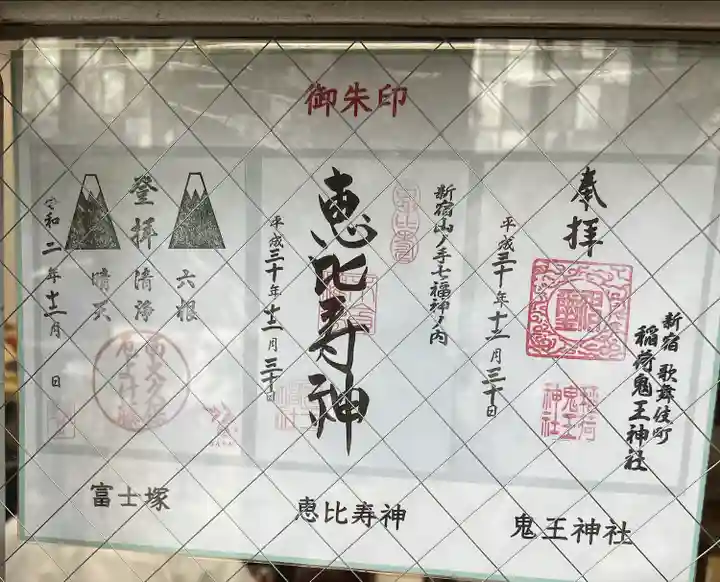 御朱印
奉拝
新宿 歌舞伎町
稲荷鬼王神社
平成三十年十二月三十日
稲荷
鬼王
神社
新宿山ノ手七福神ノ内
恵比寿神
平成三十年十二月三十日
登拝
六根
清浄
晴天
令和二年十二月 日
富士塚
恵比寿神
鬼王神社